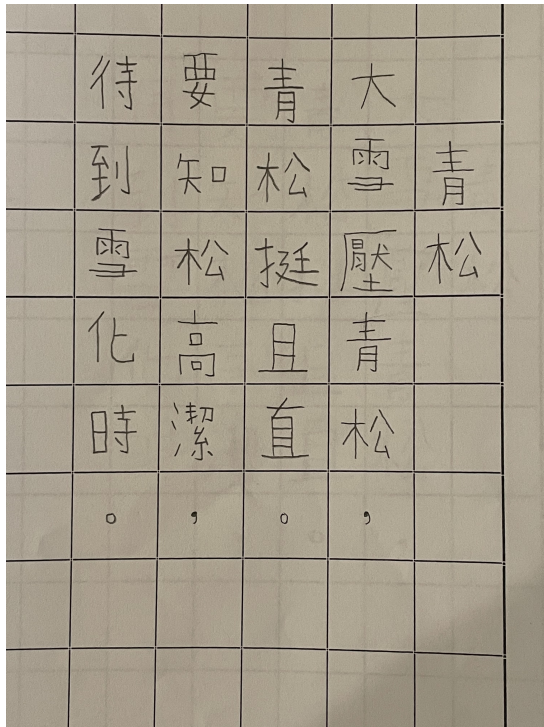 青松
大雪壓青松，
青松挺且直。
要知松高潔，
待到雪化時。